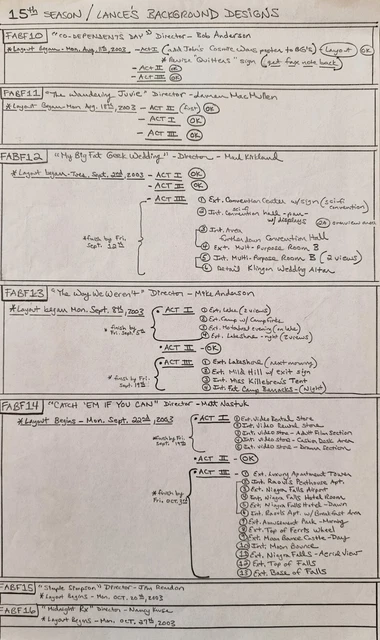 15th SEASON / LANCE'S BACKGROUND DESIGNS
FABF10 "CO-DEPENDENTS DAY" Director - Bob Anderson
* Layout began - Mon. Aug. 11th, 2003 - ACT I (add John's Cosmic Wars posters to BG's) (Layout) OK
* Revise "Quitters" sign (get fax note back)
- ACT II OK
- ACT III OK
FABF11 "The Wandering Juvie" Director - Lauren MacMullen
* Layout began Mon. Aug. 18th, 2003 - ACT I (List) OK
- ACT II OK
- ACT III OK
FABF12 "My Big Fat Geek Wedding" - Director - Mark Kirkland
* Layout began - Tues. Sept. 2nd, 2003 - ACT I OK
- ACT II OK
- ACT III
① Ext. Convention Center w/sign (sci-fi convention)
② Int. sci-fi Convention hall - pan - w/displays
2A overview
③ Int. Area further down Convention Hall
④ Ext. Multi-Purpose Room B
⑤ Int. Multi-Purpose Room B (2 views)
⑥ Detail Klingon Wedding Altar
* finish by Fri. Sept. 12th
FABF13 "The Way We Weren't" Director - Mike Anderson
* Layout began Mon. Sept. 8th, 2003
• ACT I
① Ext. Lake (2 views)
② Ext. Camp w/Campfire
③ Ext. evening (on lake)
④ Ext. Lakeshore - night (2 views)
* finish by Fri. Sept. 5th
• ACT II - OK
• ACT III
① Ext. Lakeshore (next morning)
② Ext. Mild Hill w/ exit sign
③ Int. Miss Killebrew's Tent
④ Int. Fat Camp Barracks - (Night)
* finish by Fri. Sept. 19th
FABF14 "CATCH 'EM IF YOU CAN" Director - Matt Nastuk
* Layout Begins - Mon. Sept. 22nd, 2003
• ACT I
① Ext. Video Rental Store
② Int. Video Rental Store
③ Int. video store - Adult Film Section
④ Int. video store - Cashier Desk Area
⑤ Int. video store - Drama Section
* finish by Fri. Sept. 19th
• ACT II - OK
• ACT III -
① Ext. Luxury Apartment Tower
② Int. Raoul's Penthouse Apt.
③ Ext. Niagra Falls Airport
④ Int. Niagra Falls Hotel Room
⑤ Ext. Niagra Falls Hotel - Dawn
⑥ Int. Raoul's Apt. w/Breakfast Area
⑦ Ext. Amusement Park - Morning
⑧ Ext. Top of Ferris Wheel
⑨ Ext. Moon Bounce Castle - Day
⑩ Int. Moon Bounce
⑪ Ext. Niagra Falls - Aerial View
⑫ Ext. Top of Falls
⑬ Ext. Base of Falls
* finish by Fri. Oct. 3rd
FABF15 "Simple Simpson" Director - Jim Reardon
* Layout Begins - Mon. OCT. 20th, 2003
FABF16 "Midnight Rx" Director - Nancy Kruse
* Layout Begins - Mon. OCT. 27th, 2003